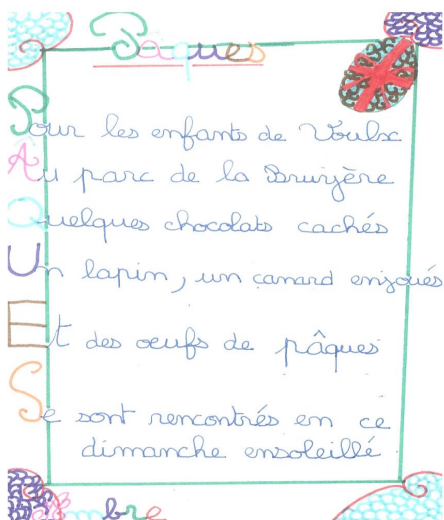 Pâques
Pour les enfants de Voulx
Au parc de la Bruyère
Quelques chocolats cachés
Un lapin, un canard enjoués
Et des oeufs de pâques
Se sont rencontrés en ce
dimanche ensoleillé